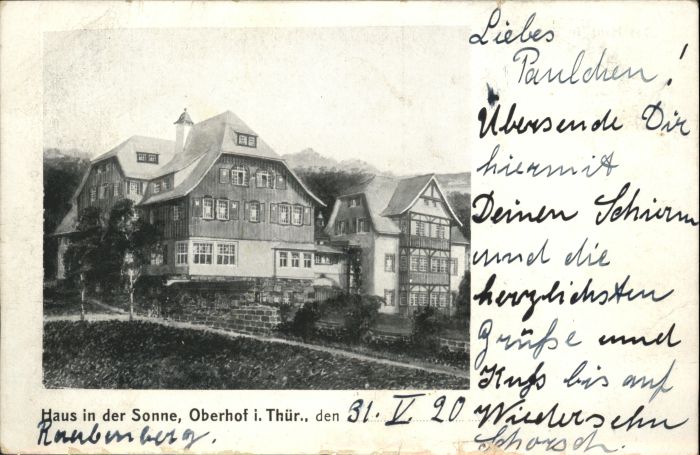 Liebes
Paulchen!
Übersende Dir
hiermit
Deinen Schirm
und die
herzlichsten
Grüße und
Kuß bis auf
Wiedersehn
Schorsch.
Haus in der Sonne, Oberhof i. Thür., den 31. V. 20
Raubenberg.